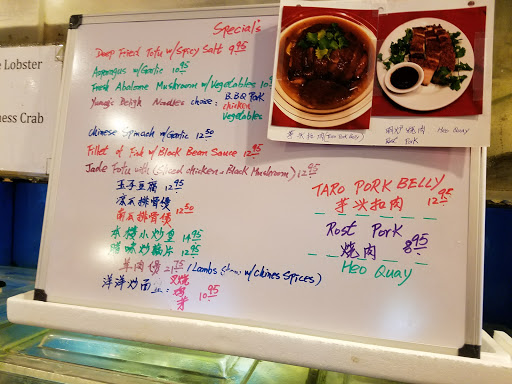 Lobster
ness Crab
Special's
Deep Fried Tofu w/Spicy Salt 9.95
Asparagus w/Garlic 10.95
Fresh Abalone Mushroom w/Vegetables 10
Noodles choice: B.B.Q Pork
chicken
Vegetables
Chinese Spinach w/Garlic 12.50
Fillet of Fish w/Black Bean Sauce 12.95
Jade Tofu with (Sliced chicken + Black Mushroom) 12.95
玉子豆腐 12.95
凉瓜排骨煲
南瓜排骨煲 12.50
本楼小炒皇 14.95
腊味炒糯片 12.95
羊肉煲 21.75 (Lambs w/Chines Spices)
洋洋炒面 : 叉烧
鸡
菜
10.95
芋头扣肉 (Taro Pork Belly)
烧肉 Heo Quay
Rost Pork
TARO PORK BELLY
芋头扣肉 12.95
Rost Pork
烧肉 8.95
Heo Quay